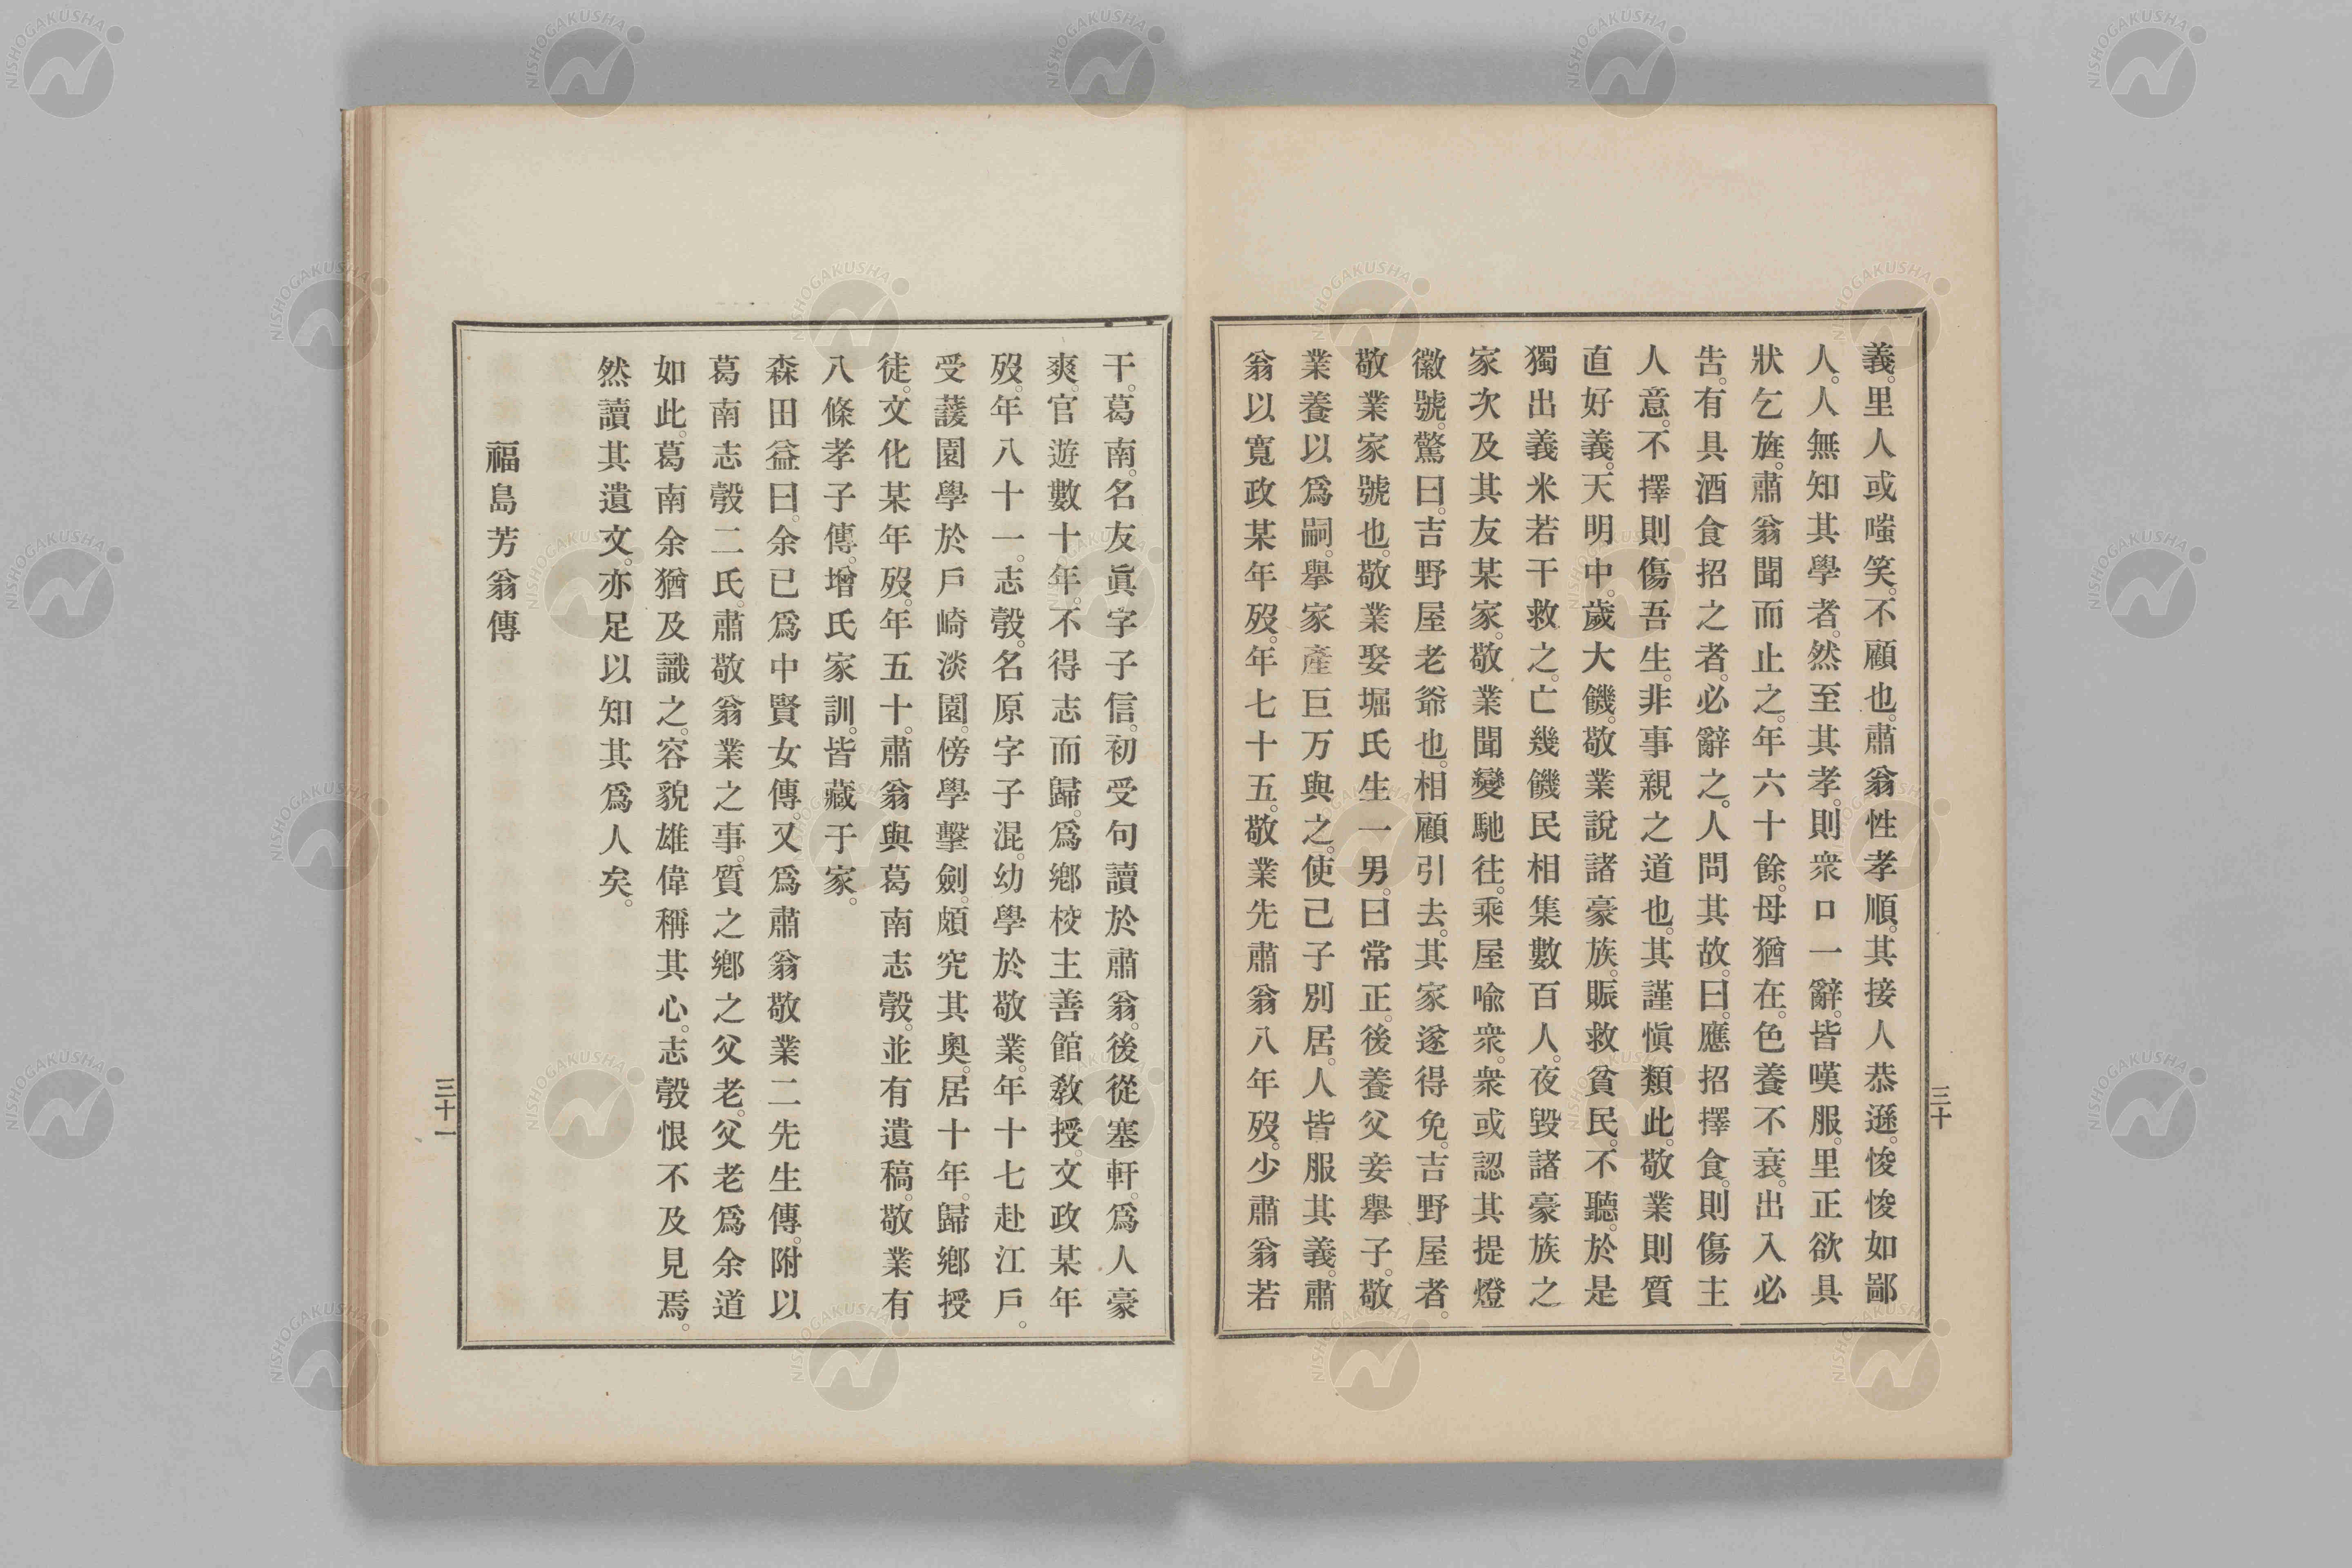 義。里人或嗤笑。不顧也。肅翁性孝順。其接人恭遜。悛悛如鄙
人。人無知其學者。然至其孝。則衆口一辭。皆嘆服。里正欲具
狀乞旌。肅翁聞而止之。年六十餘。母猶在。色養不衰。出入必
告。有具酒食招之者。必辭之。人問其故。曰。應招擇食。則傷主
人意。不擇則傷吾生。非事親之道也。其謹愼類此。敬業則質
直好義。天明中。歲大饑。敬業說諸豪族。賑救貧民。不聽。於是
獨出義米若干救之。亡幾饑民相集數百人。夜毀諸豪族之
家。次及其友某家。敬業聞變馳往。乘屋喩衆。衆或認其提燈
徽號。驚曰。吉野屋老爺也。相顧引去。其家遂得免。吉野屋者。
敬業家號也。敬業娶堀氏生一男。曰常正。後養父妾擧子。敬
業養以爲嗣。擧家產巨万與之。使己子別居。人皆服其義。肅
翁以寬政某年歿。年七十五。敬業先肅翁八年歿。少肅翁若
三十
干。葛南。名友眞字子信。初受句讀於肅翁。後從塞軒。爲人豪
爽。官遊數十年。不得志而歸。爲鄕校主善館敎授。文政某年
歿。年八十一。志彀。名原字子混。幼學於敬業。年十七赴江戶。
受蘐園學於戶崎淡園。傍學擊劍。頗究其奧。居十年。歸鄕授
徒。文化某年歿。年五十。肅翁與葛南志彀。並有遺稿。敬業有
八條孝子傳。增氏家訓。皆藏于家。
森田益曰。余已爲中賢女傳。又爲肅翁敬業二先生傳。附以
葛南志彀二氏。肅敬翁業之事。質之鄕之父老。父老爲余道
如此。葛南余猶及識之。容貌雄偉稱其心。志彀恨不及見焉。
然讀其遺文。亦足以知其爲人矣。
福島芳翁傳
三十一
NISHOGAKUSHA